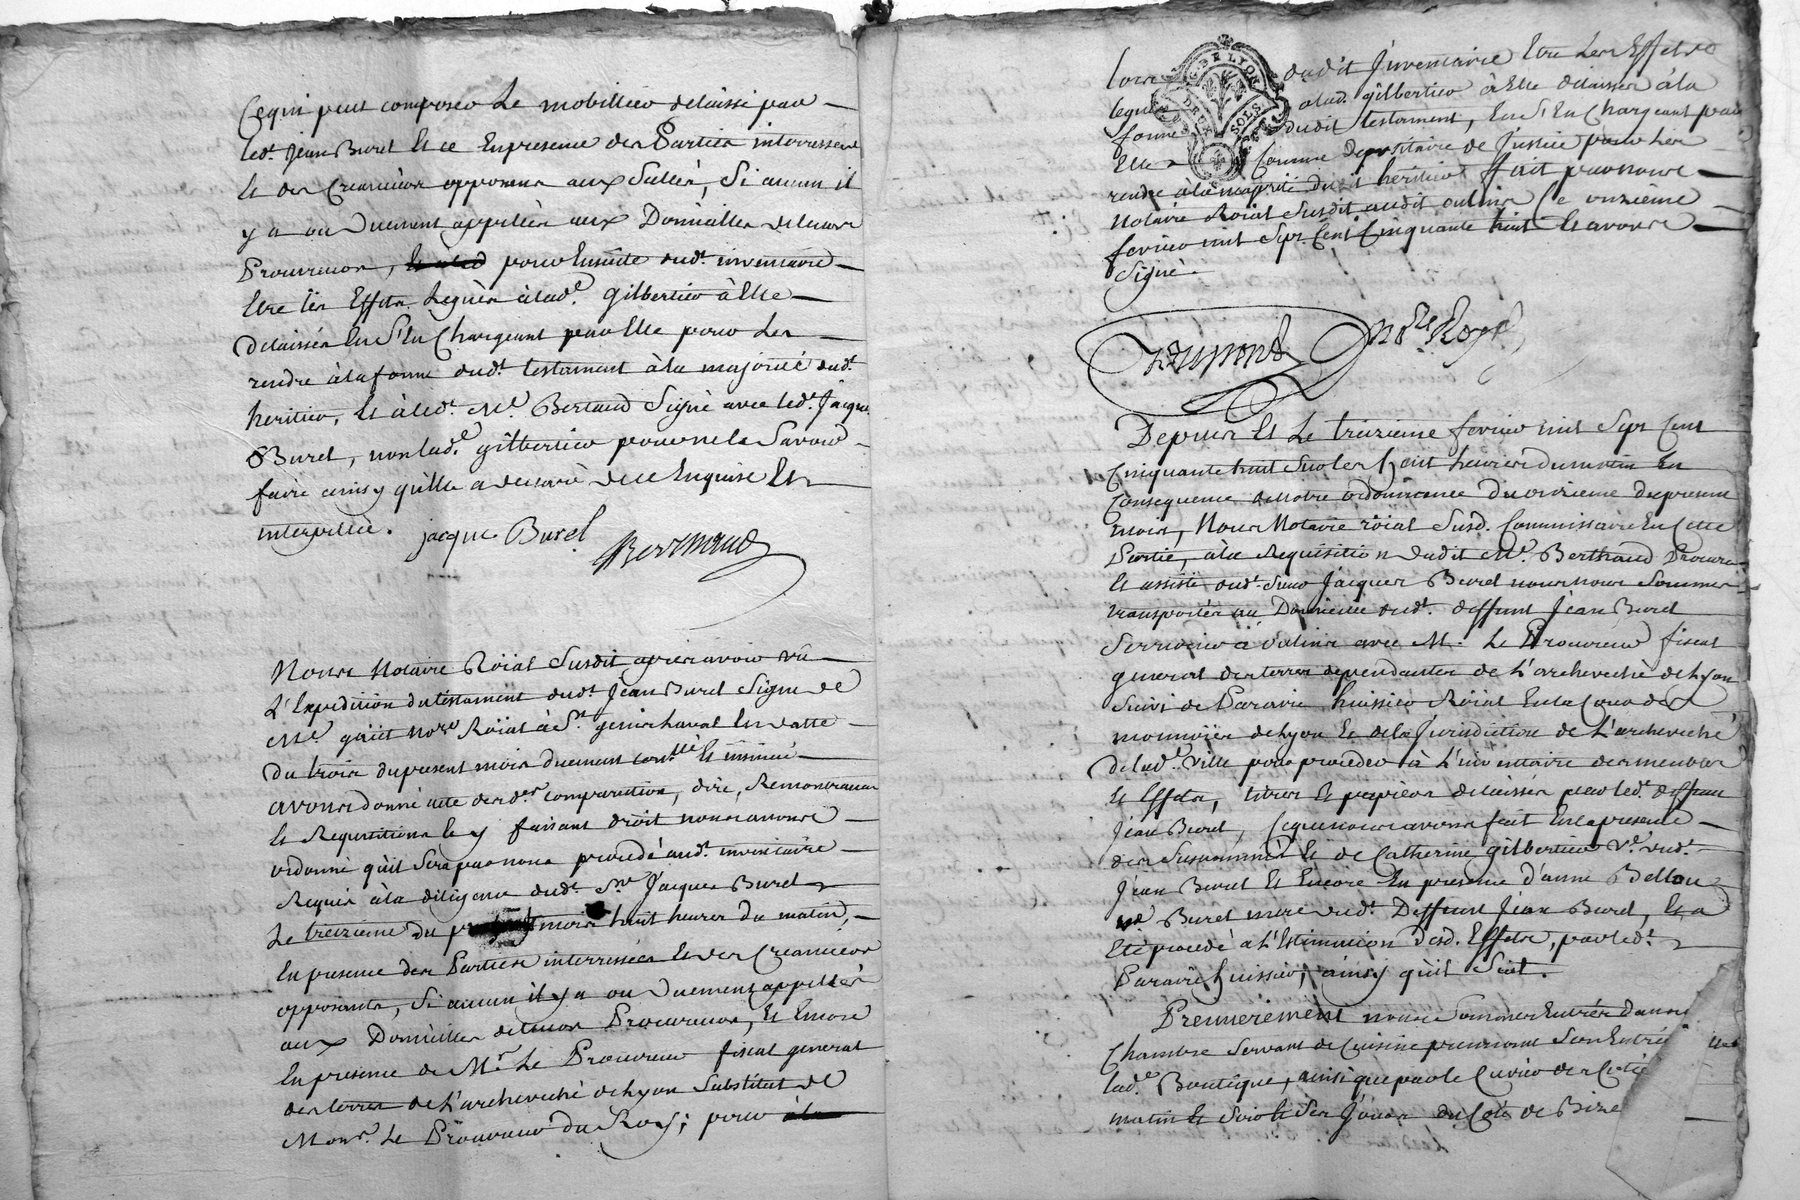 Cequi peut composer Le mobillier delaissé par
led. Jean Burel Et ce Enpresence des Parties interressées
Et des Creanciers opposans aux Sceléz, Si aucun il
y a ou Duement appellés aux Domiciles de leurs
Procureurs, pour Ensuitte dud. inventaire
Etre les Effets Legués à lad.e gilbertier à Elle
delaissés En S'En Chargeant par Elle pour Les
rendre à la forme dud. testament à la majorité dud.
heritier, Et à led. Me. Bertrand Signé avec led. Jacque
Burel, non lad.e gilbertier pour ne le Savoir
faire ainsy qu'Elle a declaré de ce Enquise Et
interpellée. jacque Burel
Bertrand
Nous Notaire Roïal Susdit apres avoir vû
L'Expedition du testament dud. Jean Burel Signé de
Me. not.re Roïal à St. genis Laval En datte
du trois du present mois duement con.llé Et insinué
avons donné acte des d.es comparution, dire, Remontrances
Et Requisitions Et y faisant droit nous avons
ordonné qu'il Sera par nous procedé aud. inventaire
Requis à la diligence dud. Sr. Jacques Burel
Le treizieme du mois huit heures du matin,
En presence des Parties interressées Et des Creanciers
opposants, Si aucun il y a ou Duement appellés
aux Domiciles de leurs Procureurs, Et Encore
En presence de Mr. Le Procureur fiscal general
des terres de L'archeveché de Lyon Substitut de
Monsr. Le Procureur du Roy; pour
DE LYON
DEUX SOLS
dudit Inventaire Etre Les Effets
à lad. gilbertier à Elle delaissés à la
forme dudit testament, En S'En Chargeant par
Elle Comme Depositaire de Justice pour Les
rendre à la majorité dudit heritier fait par nous
Notaire Roïal Susdit audit oulins Ce onzième
fevrier mil Sept Cent Cinquante huit Et avons
Signé.
No.re Royal
Depuis Et Le treizieme fevrier mil Sept Cent
Cinquante huit Sur les huit heures du matin En
Consequence de notre ordonnance du onzieme du present
mois, Nous Notaire roïal Susd. Commissaire En Cette
Partie, à la Requisition dudit Me. Berthrand Procureur
Et assisté dud. Sieur Jacques Burel nous nous Sommes
transportés au Domicile dud. deffunt Jean Burel
Serrurier à oulins avec M. Le Procureur fiscal
general des terres dependantes de L'archeveché de Lyon
Suivi de Pararie huissier Roïal En la Cour des
monnoies de Lyon Et de la Jurisdiction de L'archeveché
de lad.e ville pour proceder à L'inventaire des meubles
Et Effets, titres Et papiers delaissés par led. deffunt
Jean Burel, Ceque nous avons fait En la presence
des Susnommés Et de Catherine gilbertier Ve. dud.
Jean Burel Et Encore En presence d'anne Bellou
ve. Burel mere dud. Deffunt Jean Burel, Et a
Eté procedé à L'Estimation desd. Effets, par led.
Pararie huissier, ainsy qu'il Suit.
Premierement nous Sommes Entrés dans
Chambre Servant de Cuisine prennant Son Entrée
lad.e Boutique, ainsi que par le
matin Et Soir Et Ses Jours du Coté de Bize